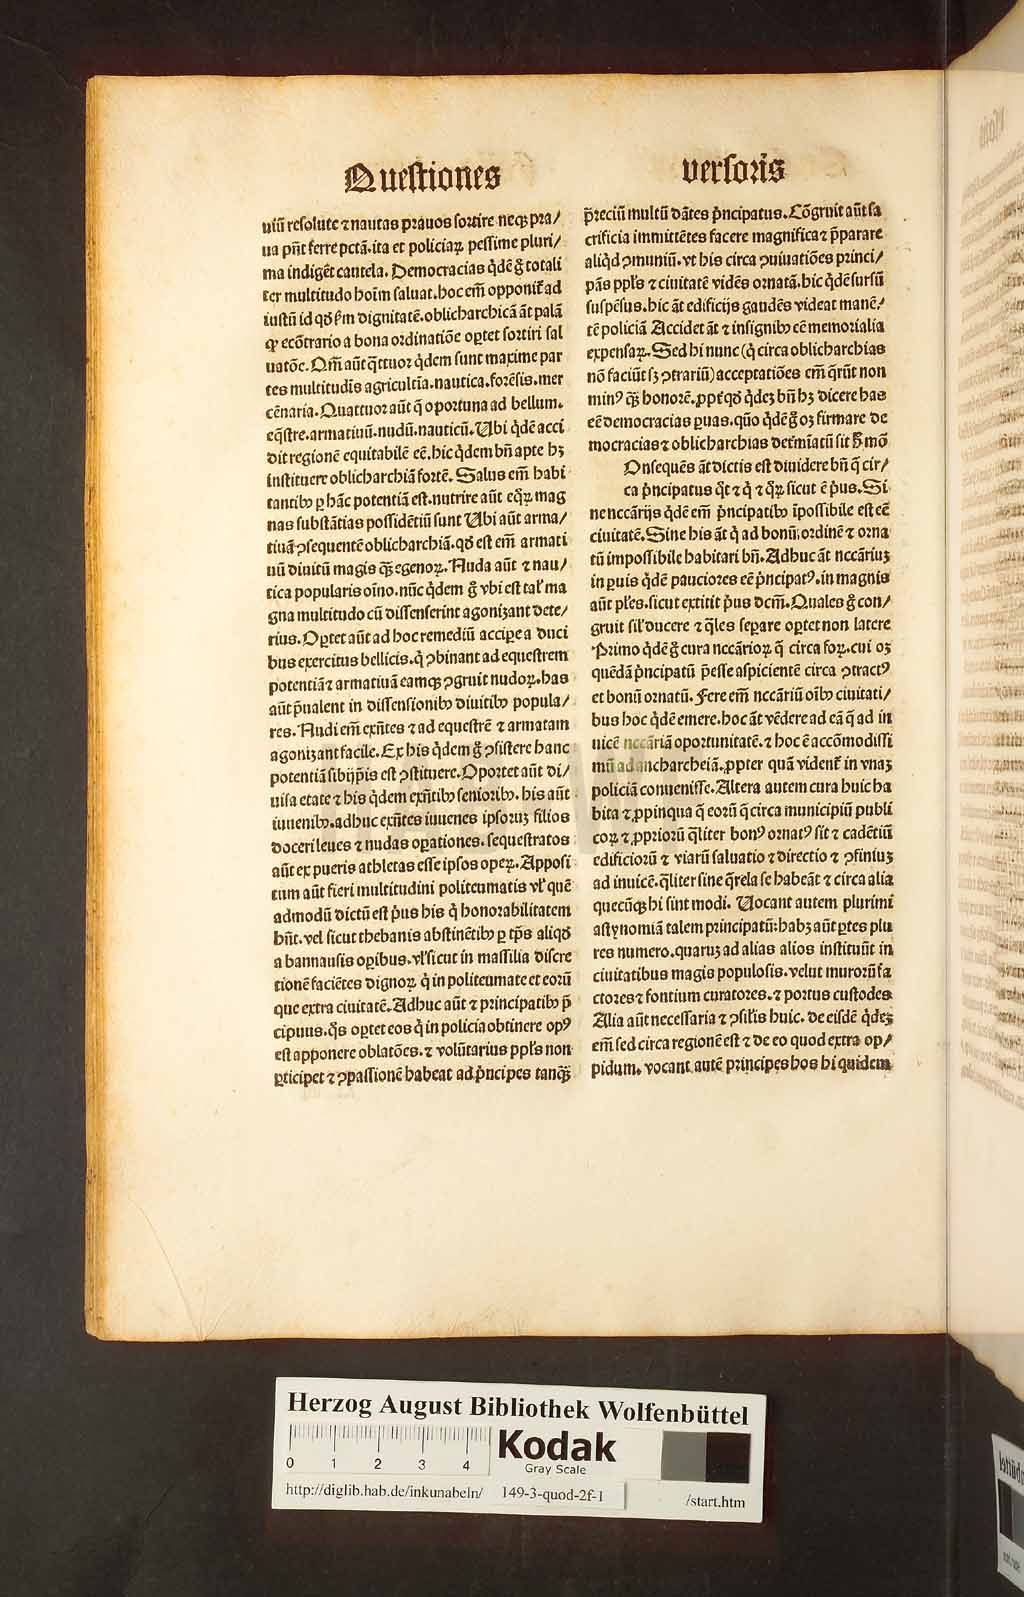 Questiones
versoris
uiū resolute ⁊ nautas prauos sortire neqꝫ pra/
ua pn̄t ferre pctā. ita et policiaꝝ pessime pluri/
ma indigēt cautela. Democracias q̇dē g̊ totali
ter multitudo hoīm saluat. hoc em̄ opponit᷑ ad
iustū id qd̓ ẜm dignitatē. oblicharchicā āt palā
ꝙ ecōtrario a bona ordinatiōe oꝑtet sortiri sal
uatōe. Qm̄ aūt q̄ttuor q̇dem sunt maxime par
tes multitudis agricultīa. nautica. forēsis. mer
cēnaria. Quattuor aūt q̄ oportuna ad bellum.
eq̄stre. armatiuū. nudū. nauticū. Ubi q̇dē acci
dit regionē equitabilē eē. hic q̇dem bn̄ apte hꝫ
instituere oblicharchiā fortē. Salus em̄ habi
tantibꝰ ꝑ hāc potentiā est. nutrire aūt eq̊ꝝ mag
nas substātias possidētiū sunt Ubi aūt arma/
tiuā ↄsequentē oblicharchiā. qd̓ est em̄ armati
uū diuitū magis qꝫ̄ egenoꝝ. Nuda aūt ⁊ nau/
tica popularis oīno. nūc q̇dem g̊ vbi est tal᷑ ma
gna multitudo cū dissenserint agonizant dete/
rius. Oꝑtet aūt ad hoc remediū accipe a duci
bus exercitus bellicis. q̇ ↄbinant ad equestrem
potentiā ⁊ armatiuā eamqꝫ ↄgruit nudoꝝ. has
aūt p̄ualent in dissensionibꝰ diuitibꝰ popula/
res. Nudi em̄ exn̄tes ⁊ ad equestrē ⁊ armatam
agonizant facile. Ex his q̇dem g̊ ↄsistere hanc
potentiā sibijp̄is est ↄstituere. Oportet aūt di/
uisa etate ⁊ his q̇dem exn̄tibꝰ senioribꝰ. his aūt
iuuenibꝰ. adhuc exn̄tes iuuenes ipsoruꝫ filios
doceri leues ⁊ nudas oꝑationes. sequestratos
aūt ex pueris athletas esse ipsos opeꝝ. Apposi
tum aūt fieri multitudini politeumatis vl᷑ quē
admodū dictū est p̓us his q̇ honorabilitatem
hn̄t. vel sicut thebanis abstinētibꝰ ꝑ tp̄s aliqd̓
a bannausis oꝑibus. vl᷑ sicut in massilia discre
tionē faciētes dignoꝝ q̇ in politeumate et eorū
que extra ciuitatē. Adhuc aūt ⁊ principatibꝰ p̄
cipuus. q̊s oꝑtet eos q̇ in policia obtinere opꝰ
est apponere oblatōes. ⁊ volūtarius ppl᷑s non
ꝑticipet ⁊ ↄpassionē habeat ad p̓ncipes tanqꝫ̄
p̄reciū multū dātes p̓ncipatus. Cōgruit aūt sa
crificia immittētes facere magnifica ⁊ p̄parare
aliq̇d ↄmuniū. vt his circa ↄuiuatiōes princi/
pās ppl᷑s ⁊ ciuitatē vidēs ornatā. hic q̇dē sursū
suspēsus. hic āt edificijs gaudēs videat manē/
tē policiā Accidet āt ⁊ insignibꝰ eē memorialia
expensaꝝ. Sed hi nunc (q̇ circa oblicharchias
nō faciūt sꝫ ↄtrariū) acceptatiōes em̄ q̄rūt non
minꝰ qꝫ̄ honorē. ꝓpt᷑ qd̓ q̇deꝫ bn̄ hꝫ dicere has
eē democracias ꝑuas. quō q̇dē g̊ oꝫ firmare de
mocracias ⁊ oblicharchias det᷑mīatū sit ẜ mō
Onsequēs āt dictis est diuidere bn̄ q̄ cir/
ca p̓ncipatus q̊t ⁊ q̇ ⁊ q̊ꝝ sicut ē p̓us. Si
ne nccārijs q̇dē em̄ p̓ncipatibꝰ īpossibile est eē
ciuitatē. Sine his āt q̇ ad bonū ordinē ⁊ orna
tū impossibile habitari bn̄. Adhuc āt nccāriuꝫ
in ꝑuis q̇dē pauciores eē p̓ncipatꝰ. in magnis
aūt pl᷑es. sicut extitit p̓us dcm̄. Quales g̊ con/
gruit sil᷑ ducere ⁊ q̄les separe oꝑtet non latere
Primo q̇dē g̊ cura nccārioꝝ q̄ circa foꝝ. cui oꝫ
quēdā p̓ncipatū p̄esse aspicientē circa ↄtractꝰ
et bonū ornatū. Fere em̄ nccāriū oībꝰ ciuitati/
bus hoc q̇dē emere. hoc āt vēdere ad eā q̄ ad in
uicē nccāriā oportunitatē. ⁊ hoc ē accōmodissi
mū ad ancharcheiā. ꝓpter quā vident᷑ in vnaꝫ
policiā conuenisse. Altera autem cura huic ha
bita ⁊ ꝓpinqua q̄ eorū q̄ circa municipiū publi
coꝝ ⁊ ꝓpriorū q̄liter bonꝰ ornatꝰ sit ⁊ cadētiū
edificiorū ⁊ viarū saluatio ⁊ directio ⁊ ↄfiniuꝫ
ad inuicē. q̄liter sine q̄rela se habeāt ⁊ circa alia
quecūqꝫ hi sint modi. Uocant autem plurimi
astynomiā talem principatū: habꝫ aūt ꝑtes plu
res numero. quaruꝫ ad alias alios instituūt in
ciuitatibus magis populosis. velut murorū fa
ctores ⁊ fontium curatores. ⁊ portus custodes
Alia aūt necessaria ⁊ ↄsil᷑is huic. de eisdē q̇deꝫ
em̄ sed circa regionē est ⁊ de eo quod extra op/
pidum. vocant autē principes hos hi quidem
Herzog August Bibliothek Wolfenbüttel
0 1 2 3 4
Kodak
Gray Scale
http://diglib.hab.de/inkunabeln/ 149-3-quod-2f-1 /start.htm